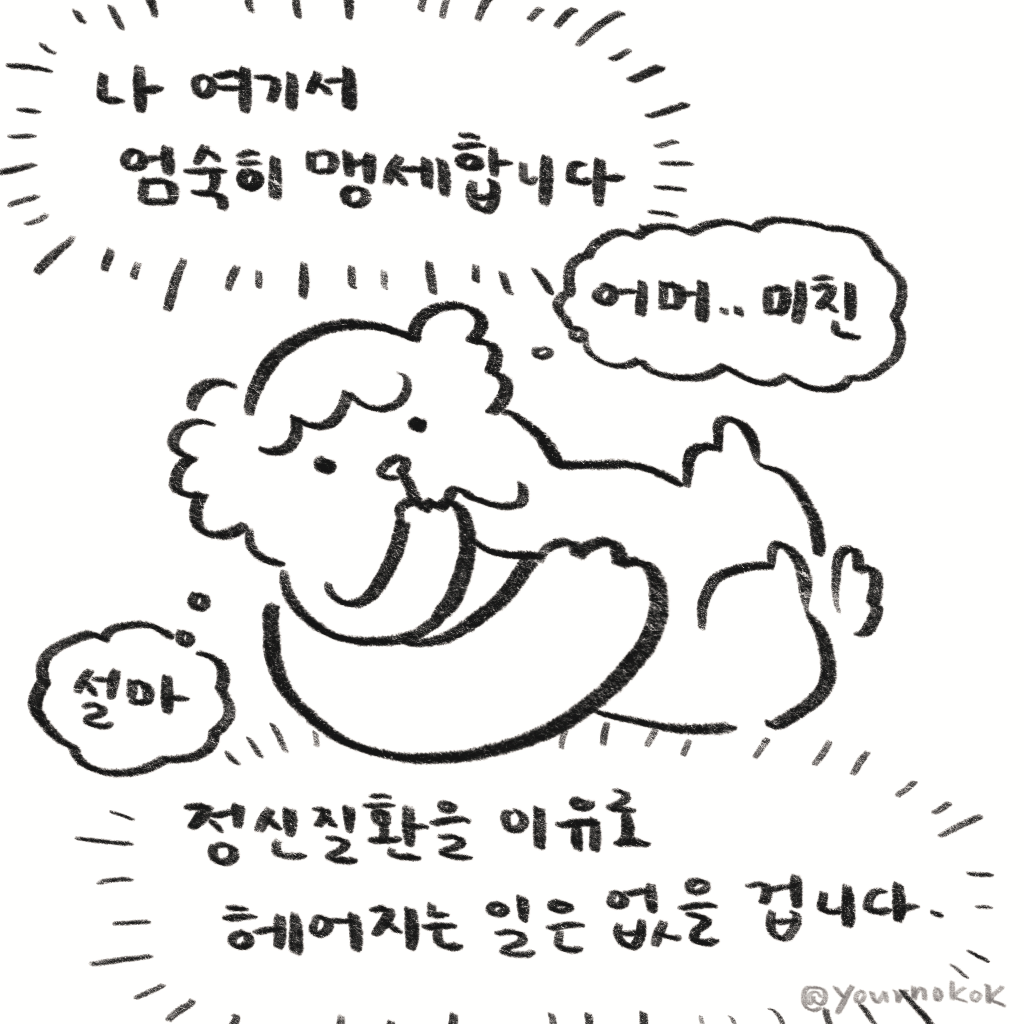 나 여기서
엄숙히 맹세합니다
어머.. 미친
설마
정신질환을 이유로
헤어지는 일은 없을 겁니다..
@yournokok